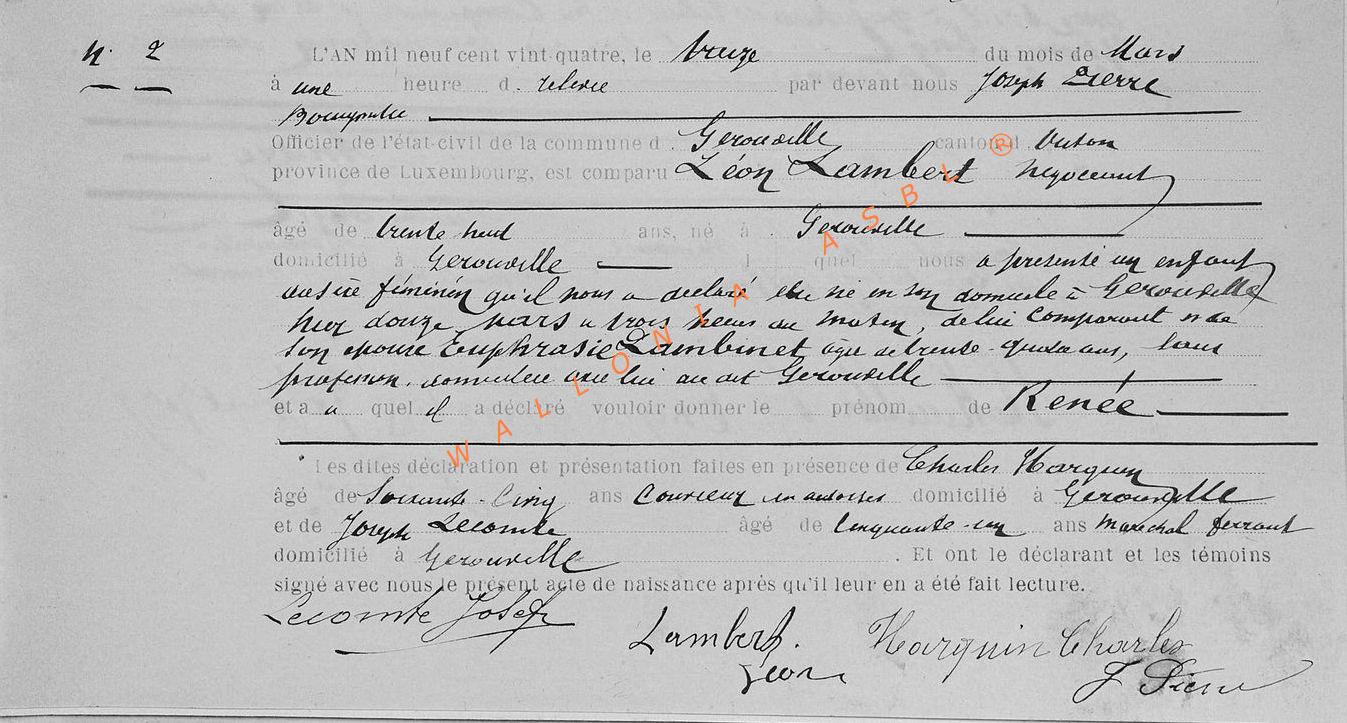 N° 2
L'AN mil neuf cent vint-quatre, le treize du mois de Mars
à une heure d. relevée par devant nous Joseph Pierre
Bourgmestre
Officier de l'état-civil de la commune d. Gerouville canton d. Virton
province de Luxembourg, est comparu Léon Lambert négociant
âgé de trente huit ans, né à Gerouville
domicilié à Gerouville l quel nous a présenté un enfant
du sexe féminin qu'il nous a déclaré être né en son domicile à Gerouville
hier douze Mars à trois heures du matin, de lui comparant et de
son épouse Euphrasie Lambinet âgée de trente-quatre ans, sans
profession, domiciliée avec lui au dit Gerouville
et a u quel il a déclaré vouloir donner le prénom de Renée
Les dites déclaration et présentation faites en présence de Charles Harquin
âgé de Soixante-Cinq ans Couvreur en ardoises domicilié à Gerouville
et de Joseph Lecomte âgé de Cinquante-un ans maréchal ferrant
domicilié à Gerouville. Et ont le déclarant et les témoins
signé avec nous le présent acte de naissance après qu'il leur en a été fait lecture.
Lecomte Josef
Lambert Harquin Charles
Léon J Pierre
WALLONIA ASBL ®